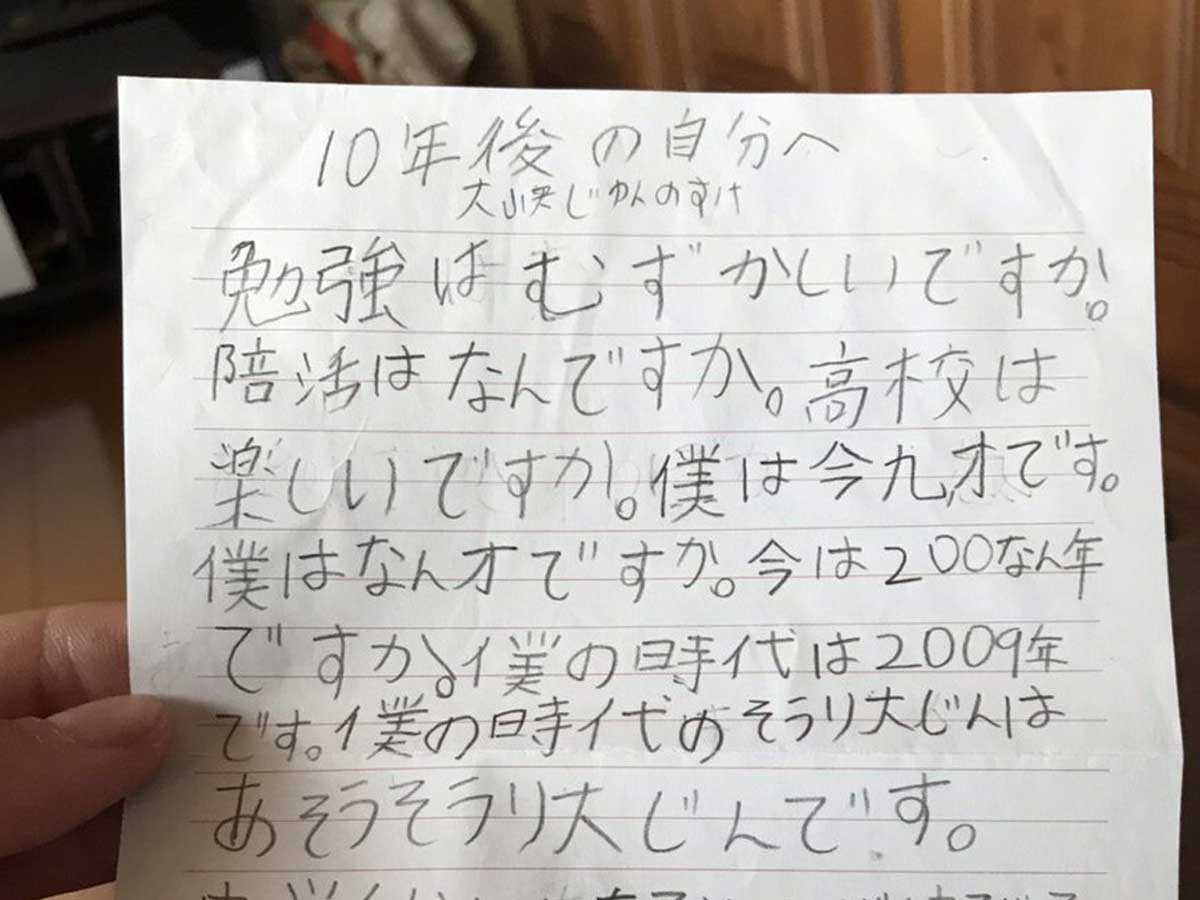 10年後の自分へ
大峡じゅんのすけ
勉強はむずかしいですか。
陪活はなんですか。高校は
楽しいですか。僕は今九才です。
僕はなん才ですか。今は200なん年
ですか。僕の時代は2009年
です。僕の時代のそうり大じんは
あそうそうり大じんです。